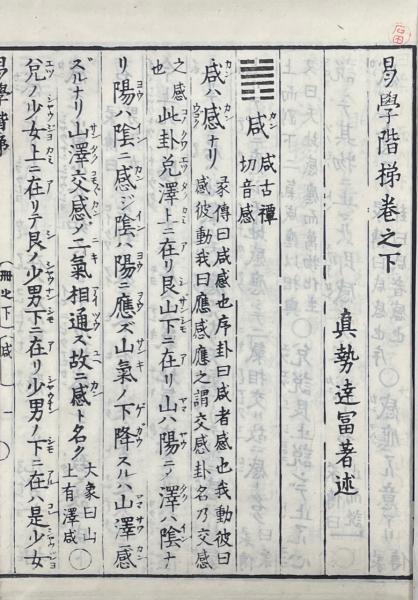 易學階梯卷之下
真勢達冨著述
咸 咸古禪
切音感
咸ハ感ナリ 彖傳曰咸感也序卦曰咸者感也我動彼曰
感彼動我曰應感應之謂交感卦名乃交感
之感
也 此卦兌澤上ニ在リ艮山下ニ在リ山ハ陽ニノ澤ハ陰ナ
リ陽ハ陰ニ感ジ陰ハ陽ニ應ズ山氣ノ下降スルハ山澤ニ感
ズルナリ山澤交感ノ二氣相通ズ故ニ感ト名ク 大象曰山
上有澤咸
兌ノ少女上ニ在リテ艮ノ少男下ニ在リ少男ノ下ニ在ハ是少女
易學階梯
冊之下
咸
一